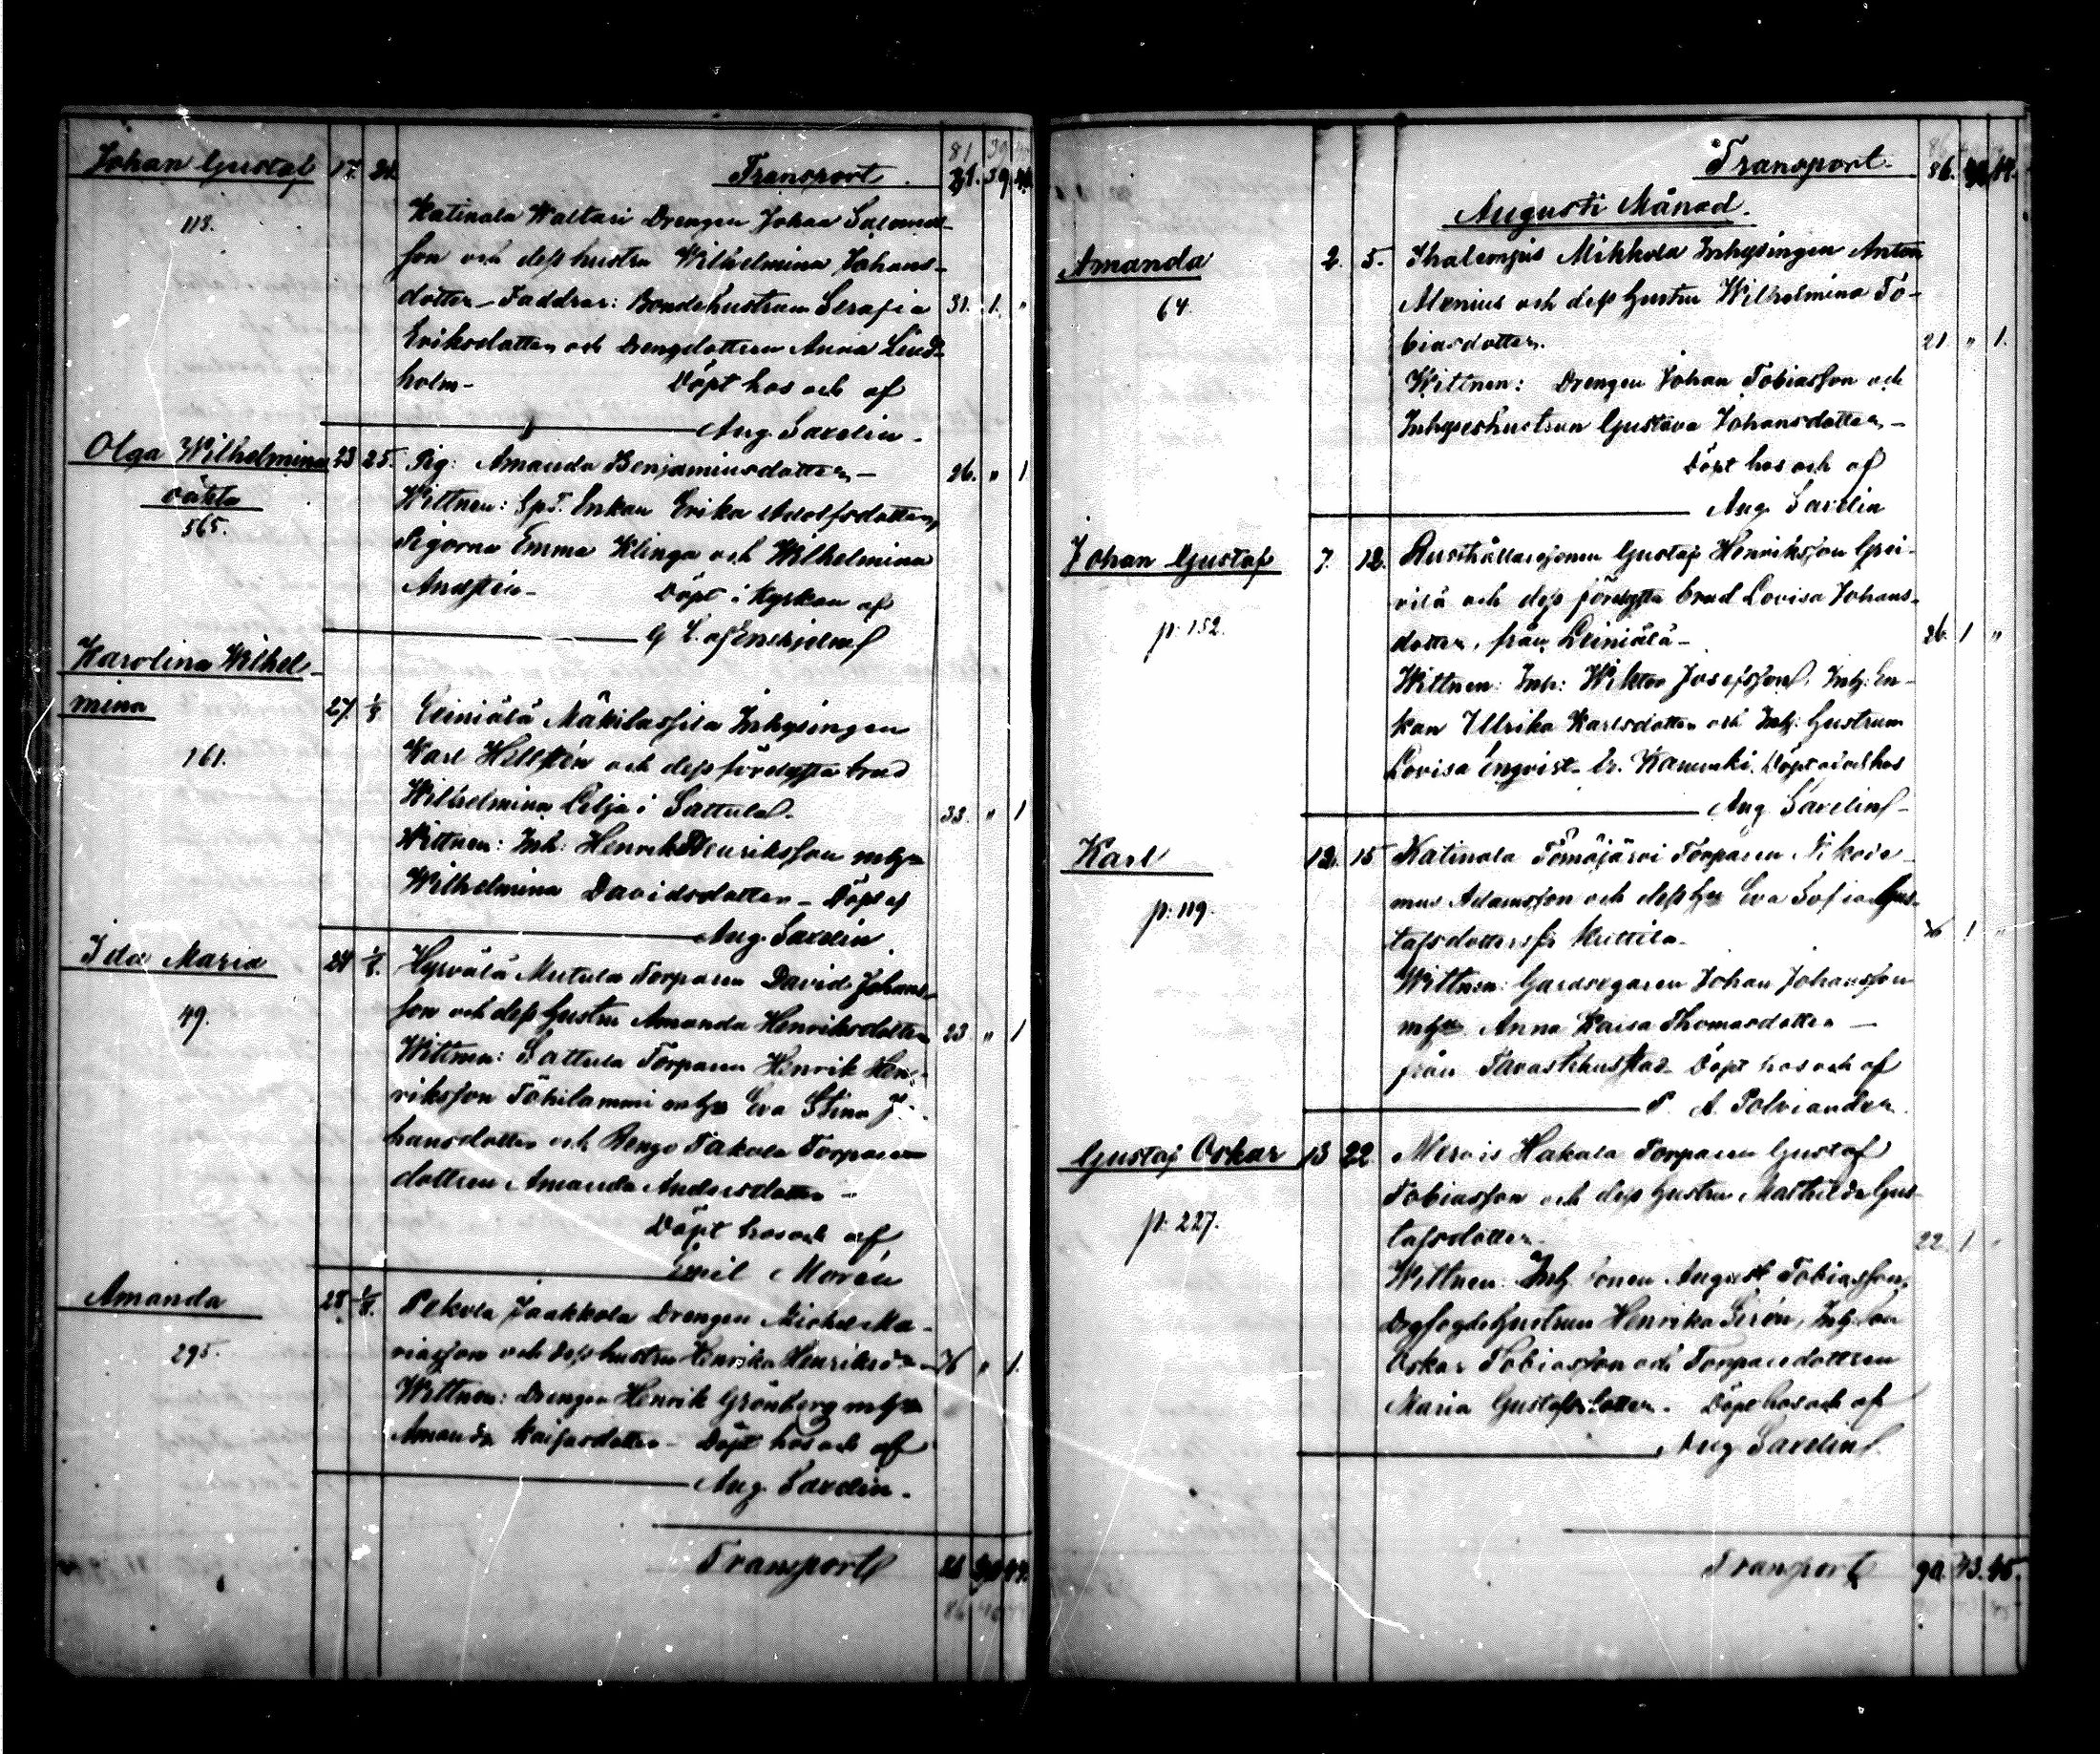 81 39
Johan Gustaf 17. 24. Transport. 81. 39
113. Katinala Waltari Drengen Johan Salomos-
son och dess hustru Wilhelmina Johans-
dotter – Faddrar: Bondehustrun Serafia 31. 1. "
Eriksdotter och Drengdottren Anna Lind-
holm – Döpt hos och af
Aug. Savelin.
Olga Wilhelmina 23 25. Pig: Amanda Benjaminsdotter – 26. " 1
oäkta Wittnen: Enkan Erika Adolfsdotter,
565. Pigorna Emma Klinga och Wilhelmina
Döpt i Kyrkan af
G
Karolina Wilhel-
mina 27. 1/8. Leiniälä Mäkilassila Inhysingen
161. Karl Hellstén och dess förelyfta brud
Wilhelmina Lilja i Sattula. 33. " 1
Wittnen: Inh: Henrik Henriksson m hu
Wilhelmina Davidsdotter – Döpt af
Aug. Savelin
Ida Maria 24 1/8. Hyrvälä Mutula Torparen David Johans-
49. son och dess Hustru Amanda Henriksdotter 23. " 1
Wittnen: Sattula Torparen Henrik Hen-
riksson Töhilammi m hu Eva Stina Jo-
hansdotter och Rengo Takula Torpare
dottren Amanda Andersdotter –
Döpt hos och af,
Emil Morén
Amanda 28 1/8. Pekola Jaakkola Drengen Michel Ma-
295. tiasson och dess hustru Henrika Henriksd " 1.
Wittnen: Drengen Henrik Grönberg m hu
Amanda Kaisasdotter – Döpt hos och af
Aug. Savelin.
Transport
Transport 86.
Augusti Månad.
Amanda 2. 5. Ihalempis Mikkola Inhysingen Anton
64. Alenius och dess Hustru Wilhelmina To-
biasdotter. 21. " 1.
Wittnen: Drengen Johan Tobiasson och
Inhyseshustrun Gustava Johansdotter –
Döpt hos och af
Aug. Savelin
Johan Gustaf 7. 12. Rusthållaresonen Gustaf Henriksson
p. 152. och dess förelyfta brud Lovisa Johans-
dotter, från Leiniälä – 26. 1 "
Wittnen: Inh: Wiktor Josefsson, Inh: En-
kan Ullrika Karlsdotter och Inh: Hustrun
Lovisa Enqvist. Döpt hos
Aug. Savelin –
Karl 12. 15 Katinala Tömäjärvi Torparen Nikode-
p. 119. mus Adamsson och dess Hu Eva Sofia Gus-
tafsdotter 1 "
Wittnen: Gardsegaren Johan Johansson
m hu Anna Kaisa Thomasdotter –
från Tavastehus stad. Döpt hos och af
P. A. Polviander
Gustaf Oskar 13 22 Mervis Hakala Torparen Gustaf
p. 227. Tobiasson och dess Hustru Mathilda Gus-
tafsdotter. 22. 1 "
Wittnen: Inh: sonen August Tobiasson,
Hustrun Henrika Inh: son
Oskar Tobiasson och Torparedottren
Maria Gustafsdotter. Döpt hos och af
Aug. Savelin
Transport 90. 43. 46.